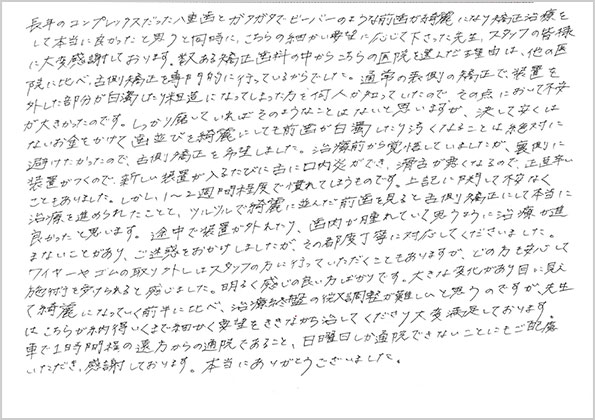 長年のコンプレックスだった八重歯とガタガタでビーバーのような前歯が綺麗になり矯正治療を
して本当に良かったと思うと同時に、こちらの細かい要望に応じて下さった先生、スタッフの皆様
に大変感謝しております。数ある矯正歯科の中からこちらの医院を選んだ理由は、他の医
院に比べ、舌側矯正を専門的に行っているからでした。通常の表側の矯正で、装置を
外した部分が白濁したり虫歯になってしまった方を何人か知っていたので、その点において不安
が大きかったのです。しっかり磨いていればそのようなことはないと思いますが、決して安くは
ないお金をかけて歯並びを綺麗にしても前歯が白濁したり汚くなることは絶対に
避けたかったので、舌側矯正を希望しました。治療前から覚悟していましたが、裏側に
装置がつくので、新しい装置が入るたびに舌に口内炎ができ、滑舌が悪くなるので、正直辛い
こともありました。しかし、1〜2週間程度で慣れてしまうものです。上記に関して不安なく
治療を進められたことと、ツルツルで綺麗に並んだ前歯を見ると舌側矯正にして本当に
良かったと思います。途中で装置が外れたり、歯肉が腫れていて思うように治療が進
まないことがあり、ご迷惑をおかけしましたが、その都度丁寧に対応してくださいました。
ワイヤーやゴムの取り外しはスタッフの方に行っていただくこともありますが、どの方も安心して
施術を受けられると感じました。明るく感じの良い方ばかりです。大きな変化があり目に見え
て綺麗になっていく前半に比べ、治療終盤の微調整が難しいと思うのですが、先生
はこちらが納得いくまで細かく要望をききながら治してくださり大変満足しております。
車で1時間程の遠方からの通院であること、日曜日しか通院できないことにもご配慮
いただき、感謝しております。本当にありがとうございました。